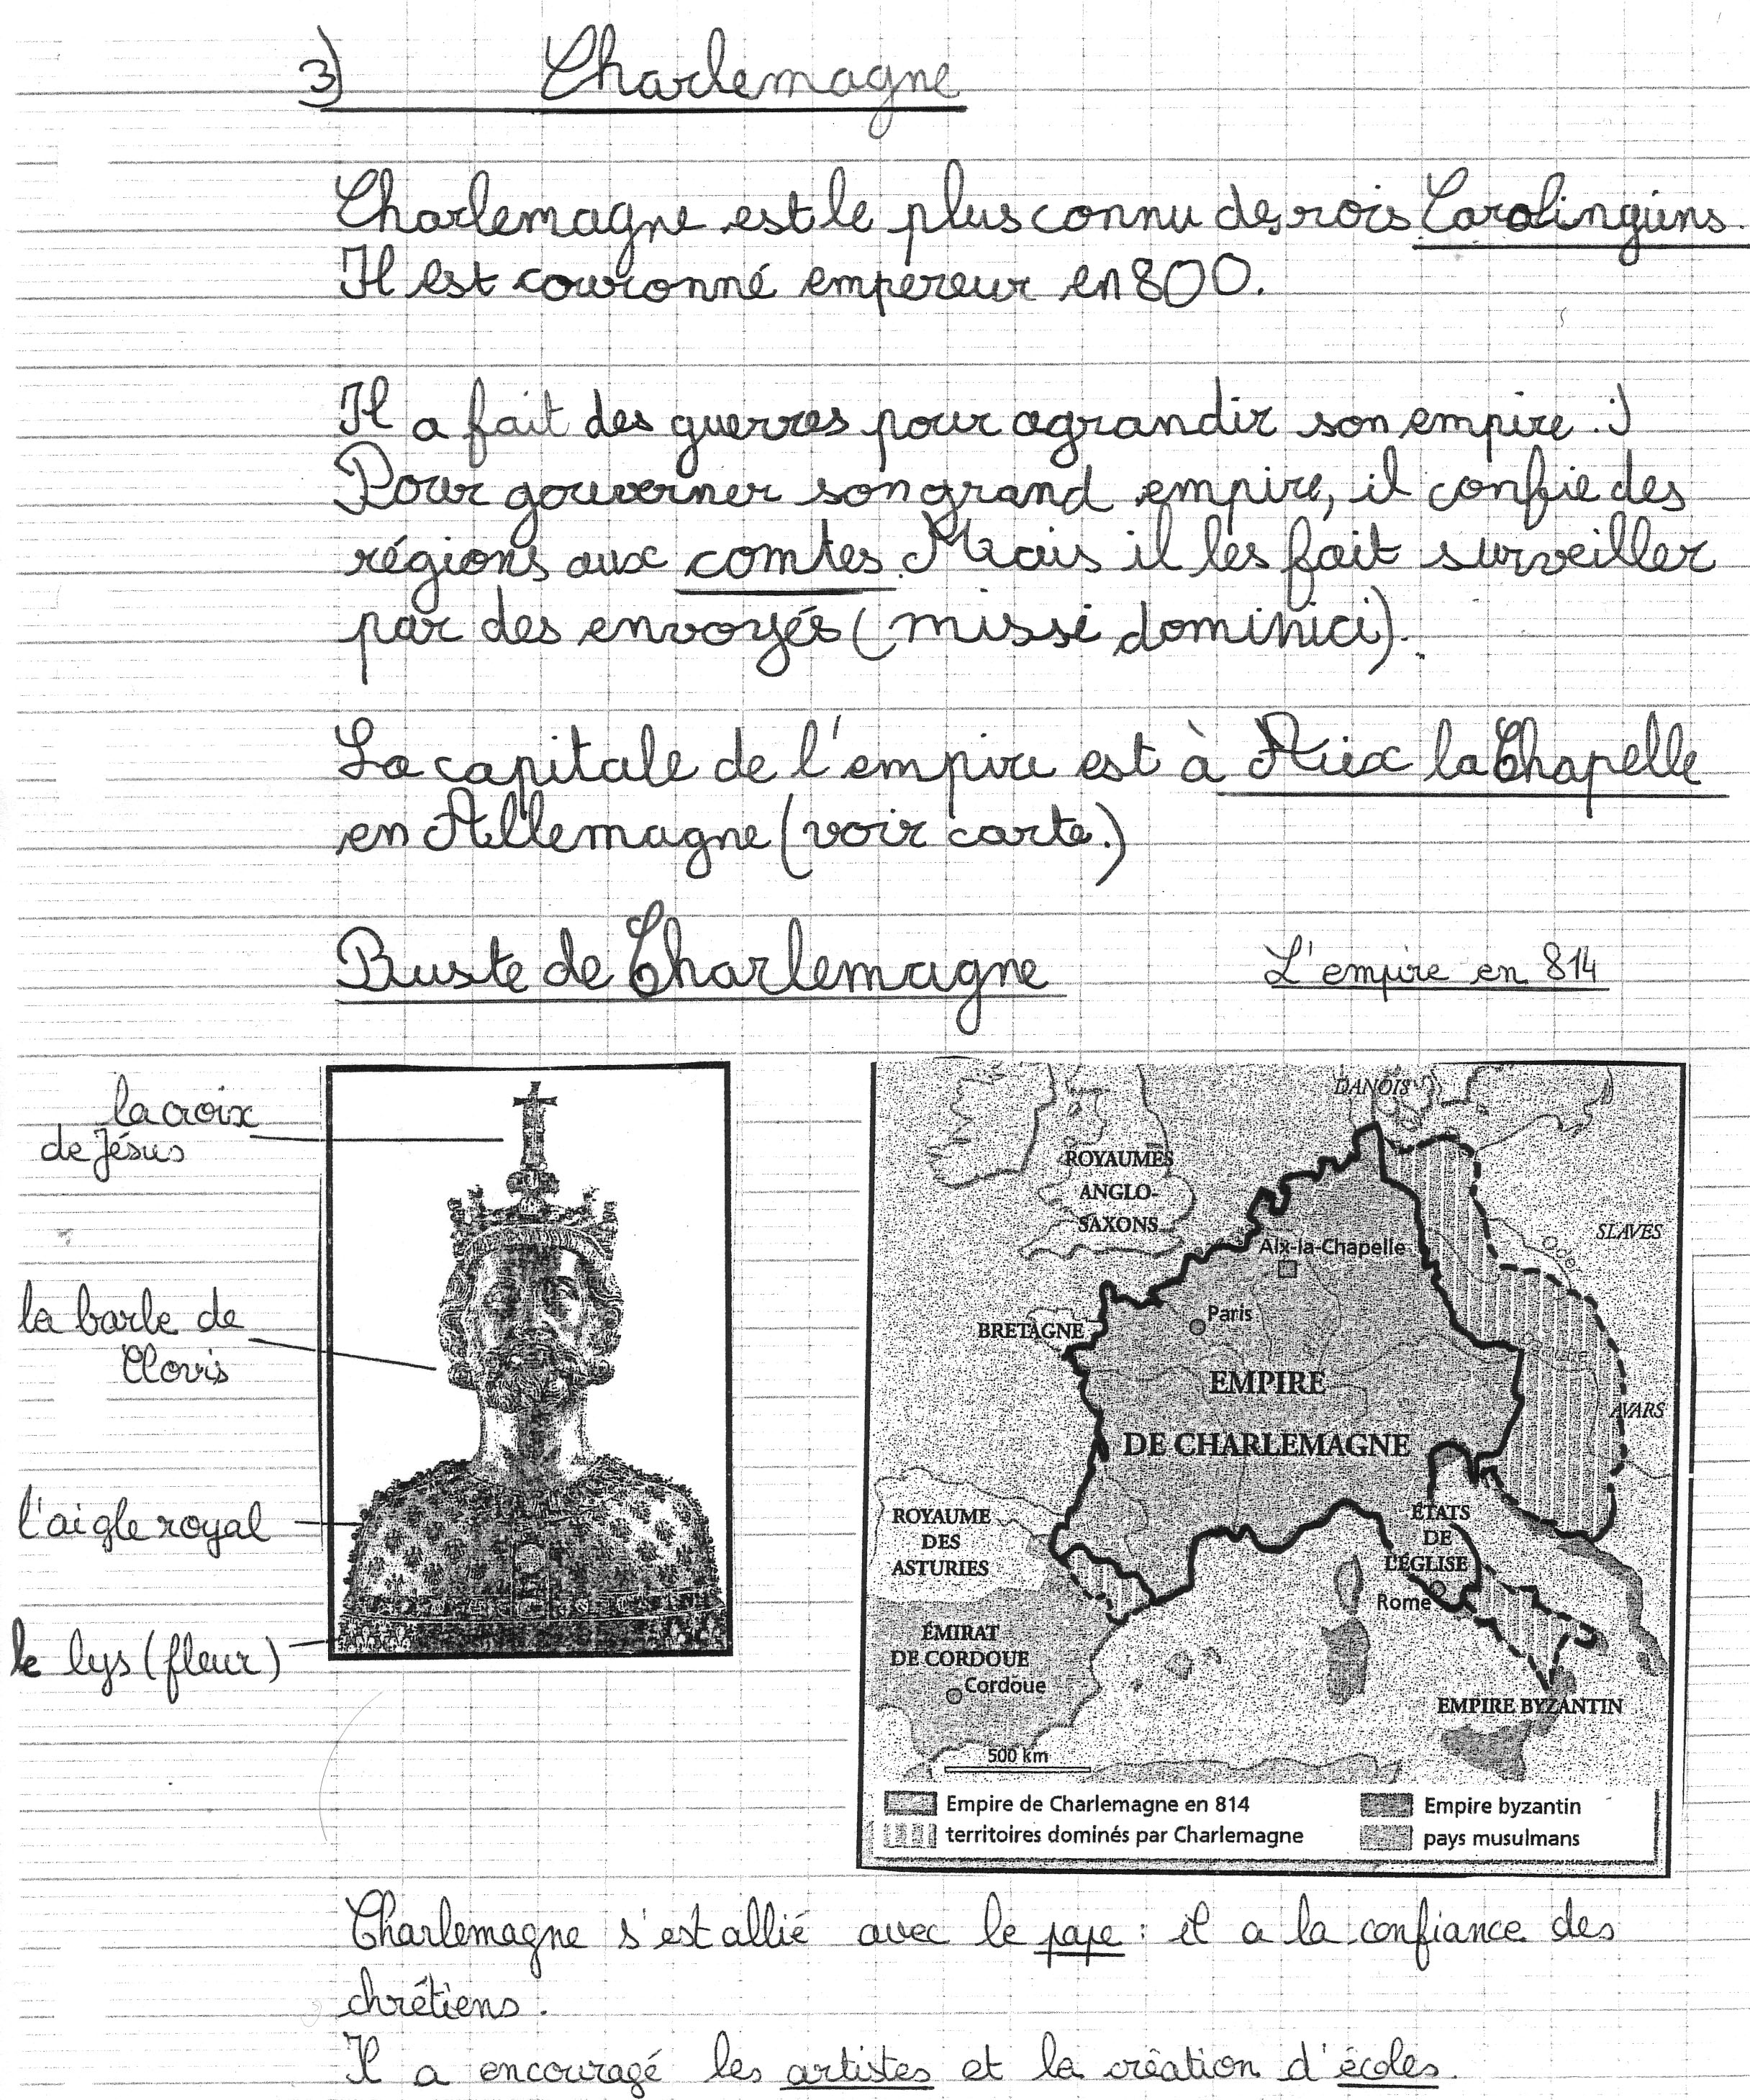 3) Charlemagne
Charlemagne est le plus connu des rois Carolingiens.
Il est couronné empereur en 800.
Il a fait des guerres pour agrandir son empire :)
Pour gouverner son grand empire, il confie des
régions aux comtes. Mais il les fait surveiller
par des envoyés (missi dominici).
La capitale de l'empire est à Aix la Chapelle
en Allemagne (voir carte.)
Buste de Charlemagne
L'empire en 814
la croix
de Jésus
la barbe de
Clovis
l'aigle royal
le lys (fleur)
DANOIS
ROYAUMES
ANGLO-
SAXONS
SLAVES
Oder
Aix-la-Chapelle
Paris
BRETAGNE
EMPIRE
DE CHARLEMAGNE
AVARS
ROYAUME
DES
ASTURIES
ÉTATS
DE
L'ÉGLISE
Rome
ÉMIRAT
DE CORDOUE
Cordoue
EMPIRE BYZANTIN
500 km
Empire de Charlemagne en 814
territoires dominés par Charlemagne
Empire byzantin
pays musulmans
Charlemagne s'est allié avec le pape : il a la confiance des
chrétiens.
Il a encouragé les artistes et la création d'écoles.